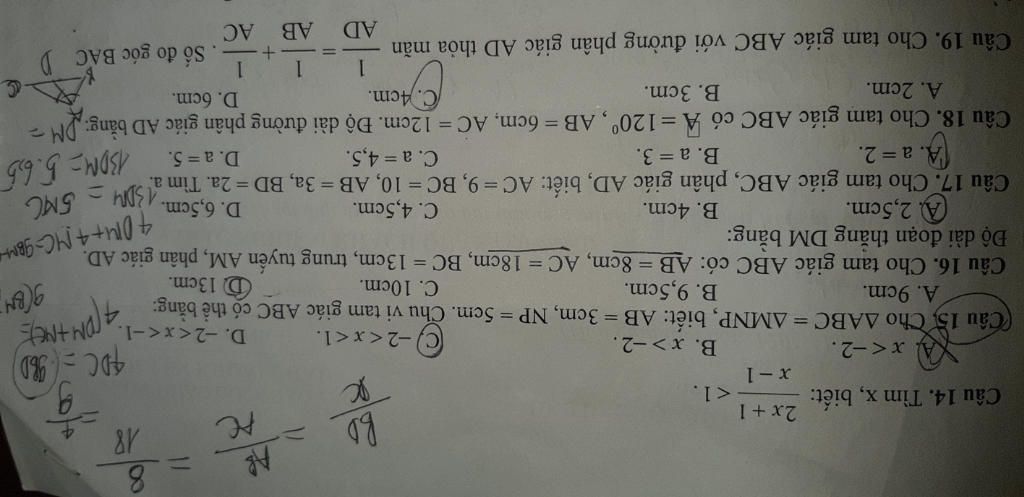 Câu 14. Tìm x, biết: \frac{2x+1}{x-1} < 1.
A. x < −2.    B. x > −2.    C. −2 < x < 1.    D. −2 < x < −1.
Câu 15. Cho ΔABC = ΔMNP, biết: AB = 3cm, NP = 5cm. Chu vi tam giác ABC có thể bằng:
A. 9cm.    B. 9,5cm.    C. 10cm.    D. 13cm.
Câu 16. Cho tam giác ABC có: AB = 8cm, AC = 18cm, BC = 13cm, trung tuyến AM, phân giác AD.
Độ dài đoạn thẳng DM bằng:
A. 2,5cm.    B. 4cm.    C. 4,5cm.    D. 6,5cm.
Câu 17. Cho tam giác ABC, phân giác AD, biết: AC = 9, BC = 10, AB = 3a, BD = 2a. Tìm a.
A. a = 2.    B. a = 3.    C. a = 4,5.    D. a = 5.
Câu 18. Cho tam giác ABC có A = 120⁰, AB = 6cm, AC = 12cm. Độ dài đường phân giác AD bằng:
A. 2cm.    B. 3cm.    C. 4cm.    D. 6cm.
Câu 19. Cho tam giác ABC với đường phân giác AD thỏa mãn \frac{1}{AD} = \frac{1}{AB} + \frac{1}{AC}. Số đo góc BAC
= \frac{AB}{AC} = \frac{8}{18} = \frac{4}{9}
4DC = 9BD
4DM + 4MC = 9BM
13DM = 5MC
13DM = 5.6,5
DM =
D